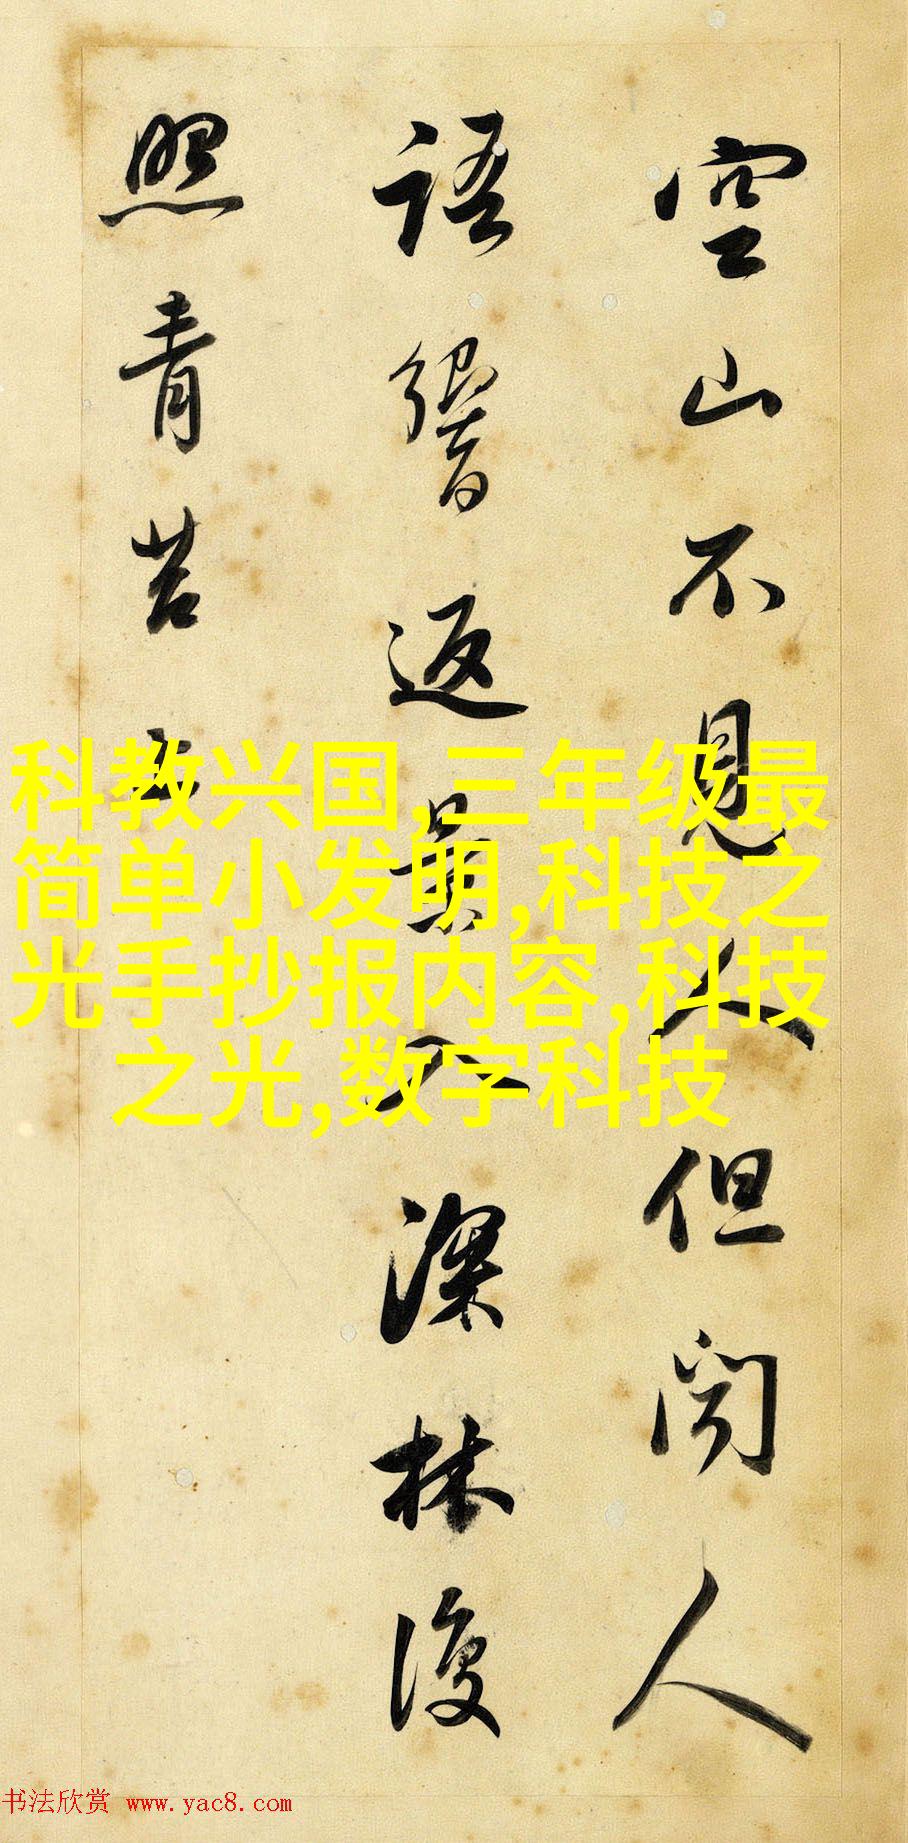 空山不見人但闻人
語響返景入深林復
照青苔上
科教兴国,三年级最
简单小发明,科技之
光手抄报内容,科技
之光,数字科技
书法欣赏 www.yac8.com